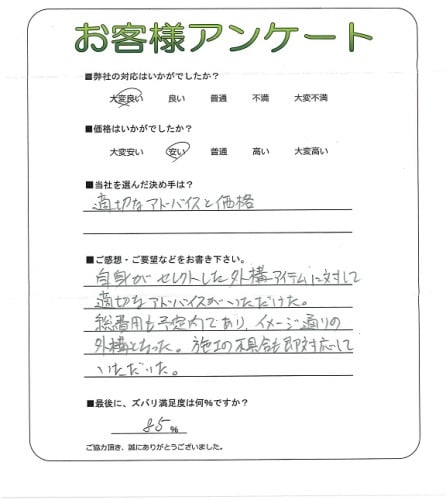 お客様アンケート
■弊社の対応はいかがでしたか?
大変良い 良い 普通 不満 大変不満
■価格はいかがでしたか?
大変安い 安い 普通 高い 大変高い
■当社を選んだ決め手は?
適切なアドバイスと価格
■ご感想・ご要望などをお書き下さい。
自身がセレクトした外構アイテムに対して
適切なアドバイスがいただけた。
総費用も予定内であり、イメージ通りの
外構となった。施工の不具合も即対応して
いただいた。
■最後に、ズバリ満足度は何%ですか?
85 %
ご協力頂き、誠にありがとうございました。